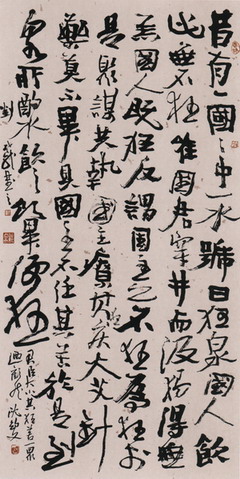 昔有一國〻中一水號曰狂泉國人飲
此無不狂唯國君穿井而汲獨得無
恙國人既狂反謂國主之不狂為狂於
是聚謀共執國主療其狂疾火艾針
藥莫不畢具國主不任其苦於是到
泉所酌水飲之飲畢便狂